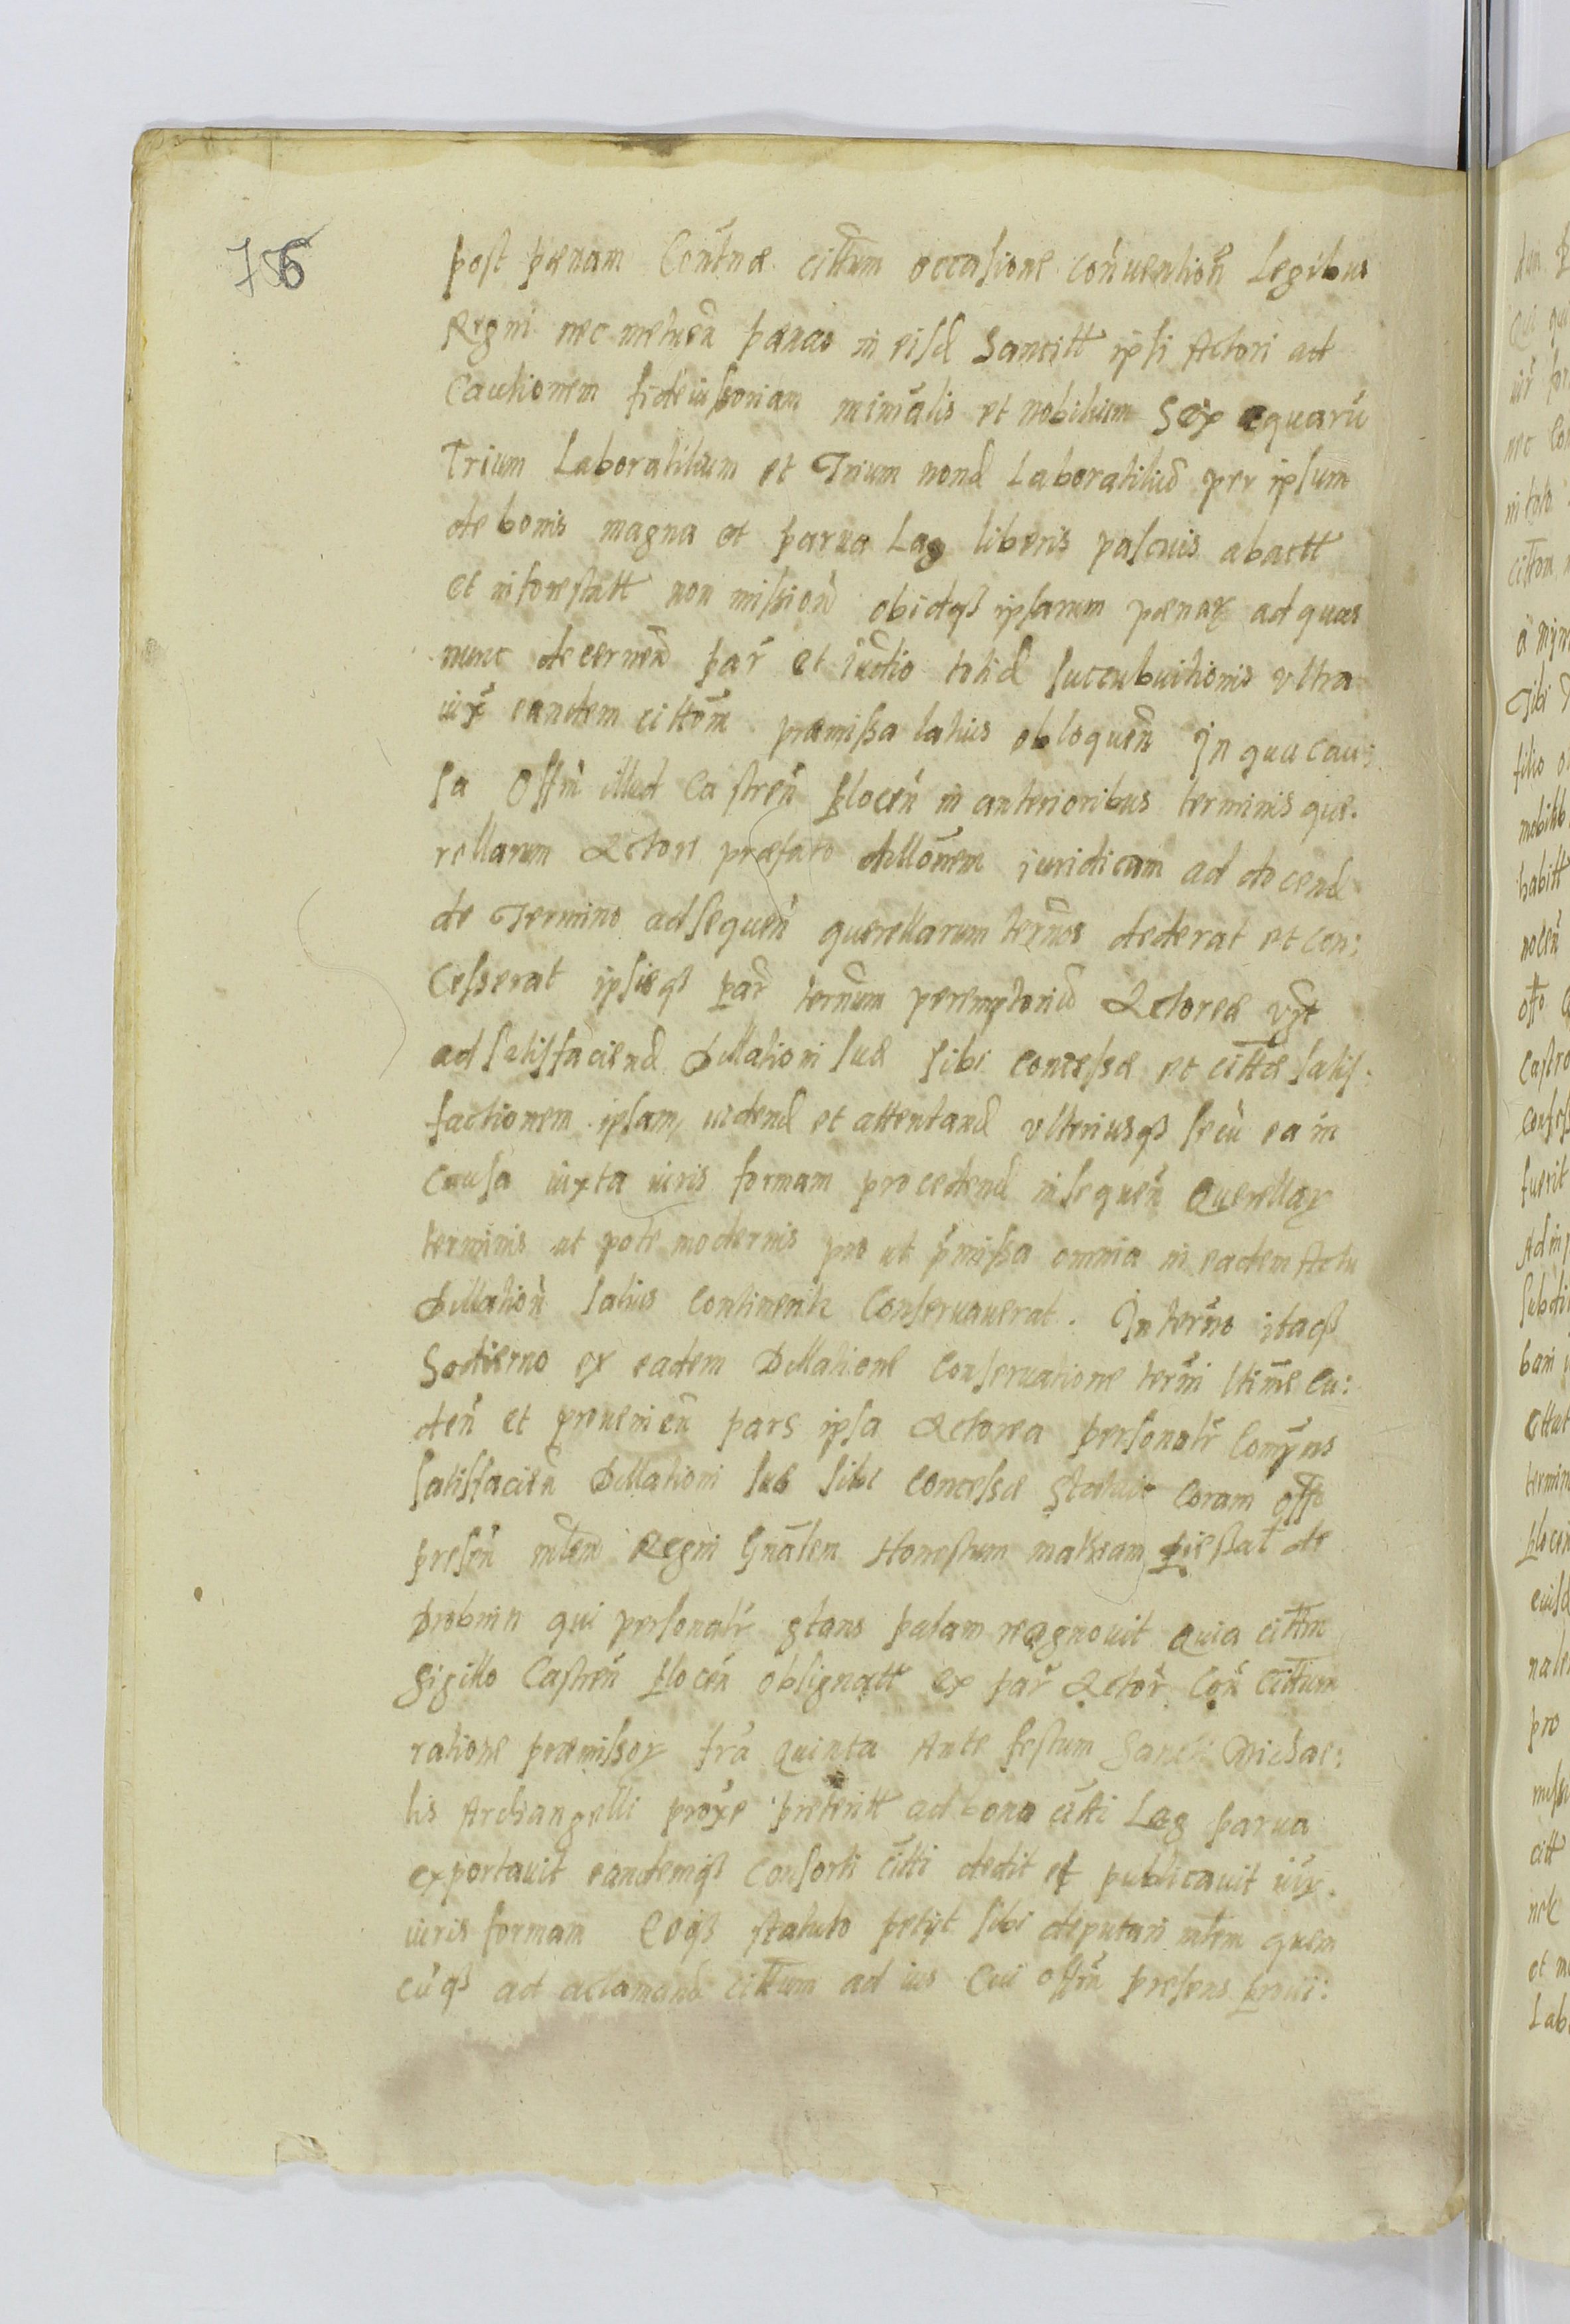 786
post pænam Contnæ cittum occasione conuention Legibus
Regni nec metuen pænas in eisd Sancitt ipsi Actori ad
Cautionem fideiussoriam minalis et nobilium Sex equaru
Trium Laboratilium et Trium nond Laboratiliu per ipsum
de bonis magna et parua Lag liberis pascuis abactt
et inforestatt non mission obidqß ipsarum pænar ad quas
nunc decernen par et iudio totid succubuitionis vltra
iux eandem cittom præmissa latius obloquen In qua cau:
sa Offm illud Castren Plocen in anterioribus terminis que.
rellarum Actori præfato dillonem iuridicam ad docend
de Termino ad sequen querellarum ternos dederat et con:
Cesserat ipsieqß par ternum peremptoriu Actoreæ vt
ad satisfaciend Dillationi suæ sibi concessæ et cittæ satis.
factionem ipsam, uidend et attentand vlteriusqß secu ea in
Causa iuxta iuris formam procedend in sequen Querellar
terminis ut pote modernis pro ut pmissa omnia in eadem Actu
Dillation latius Continentr Conseruauerat. In terno itaqß
Hodierno ex eadem Dillatione Conseruatione termi ltime Ca:
den et prouenien pars ipsa Actorea personatr Compns
satisfacien Dillationi suæ sibi concessæ Statuit Coram offo
presen mtem Regni Gnalem Honestum mathiam de
Drobnin qui personatr stans palam recognouit Quia cittm
Sigillo Castren Plocen obsignatt ex par Actor Con Cittum
ratione præmissor fra Quinta Ante festum Sancti Michae:
lis Archangelli proxe preteritt ad bona citti Lag parua
exportauit eandemqß Consorti citti dedit et publicauit iux.
iuris formam Eoqß statuto petijt sibi deputari mtem quem
cuqß ad aclamand cittum ad ius Cui offm presens proui: